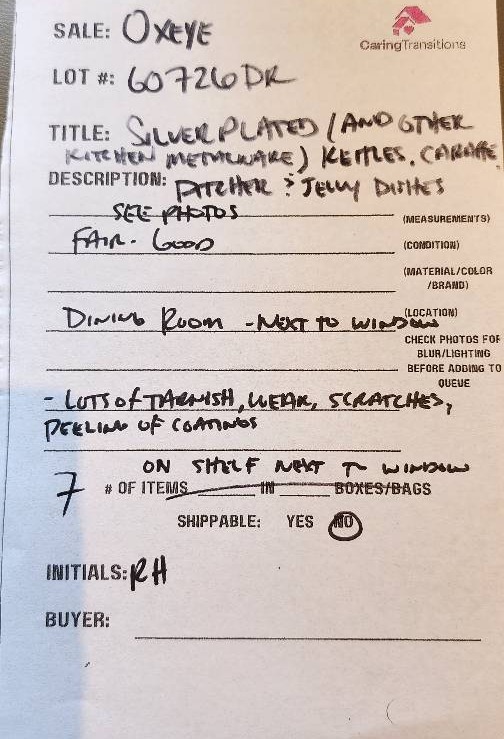 SALE: OXEYE
CaringTransitions
LOT #: 60726DR
TITLE: SILVERPLATED (AND OTHER
KITCHEN METALWARE) KETTLES, CARAFFE,
DESCRIPTION: PITCHER & JELLY DISHES
SEE PHOTOS (MEASUREMENTS)
FAIR - GOOD (CONDITION)
(MATERIAL/COLOR
/BRAND)
(LOCATION)
DINING ROOM - NEXT TO WINDOW
CHECK PHOTOS FOR
BLUR/LIGHTING
BEFORE ADDING TO
QUEUE
- LOTS OF TARNISH, WEAR, SCRATCHES,
PEELING OF COATINGS
ON SHELF NEXT TO WINDOW
7 # OF ITEMS IN BOXES/BAGS
SHIPPABLE: YES NO
INITIALS: RH
BUYER: